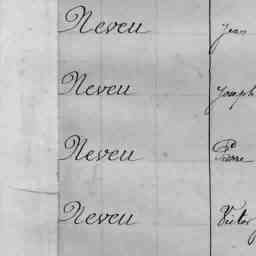 Neveu Jean
Neveu Joseph
Neveu Pierre
Neveu Victor